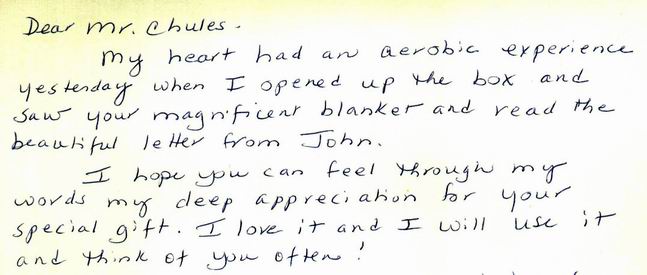 Dear Mr. Chules.
My heart had an aerobic experience
yesterday when I opened up the box and
saw your magnificent blanket and read the
beautiful letter from John.
I hope you can feel through my
words my deep appreciation for your
special gift. I love it and I will use it
and think of you often!